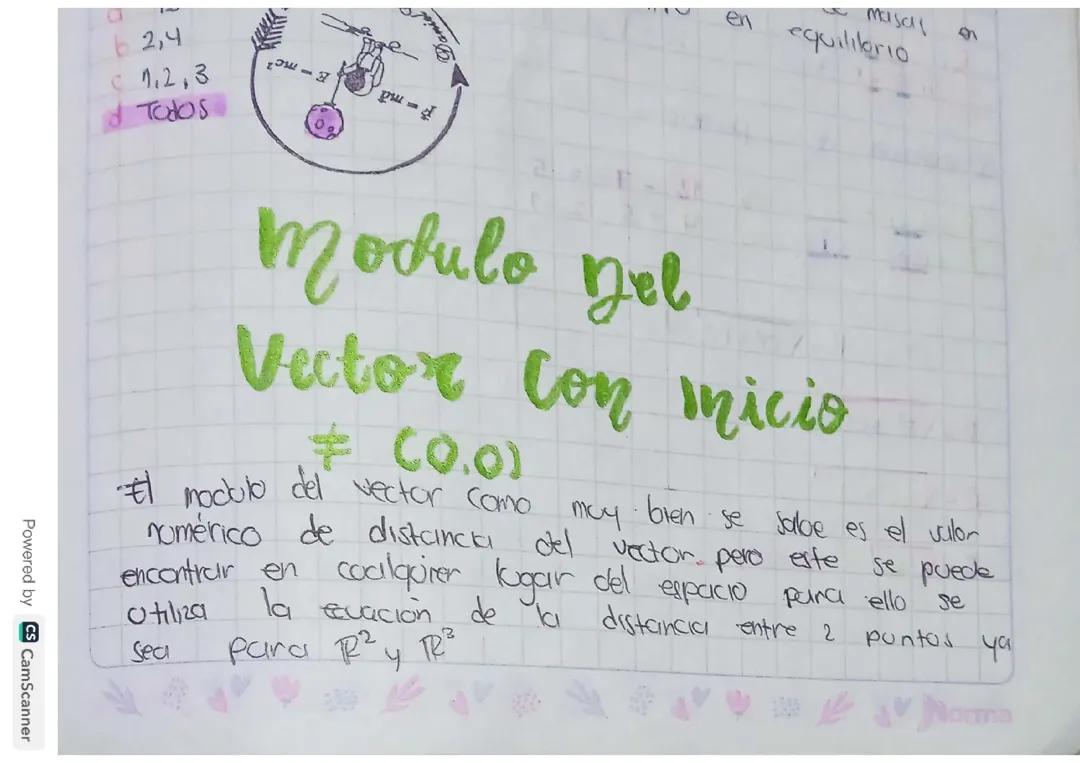 b 2,4
c 1,2,3
d Todos
E = mc²
F = ma
en
masas en
equilibrio
Modulo Del
Vector Con Inicio
≠ (0.0)
El modulo del vector como muy bien se sabe es el valor
numérico de distancia del vector. pero este se puede
encontrar en coalquier lugar del espacio para ello se
utiliza la ecuación de la distancia entre 2 puntos ya
sea para ℝ² y ℝ³
Norma
Powered by CS CamScanner